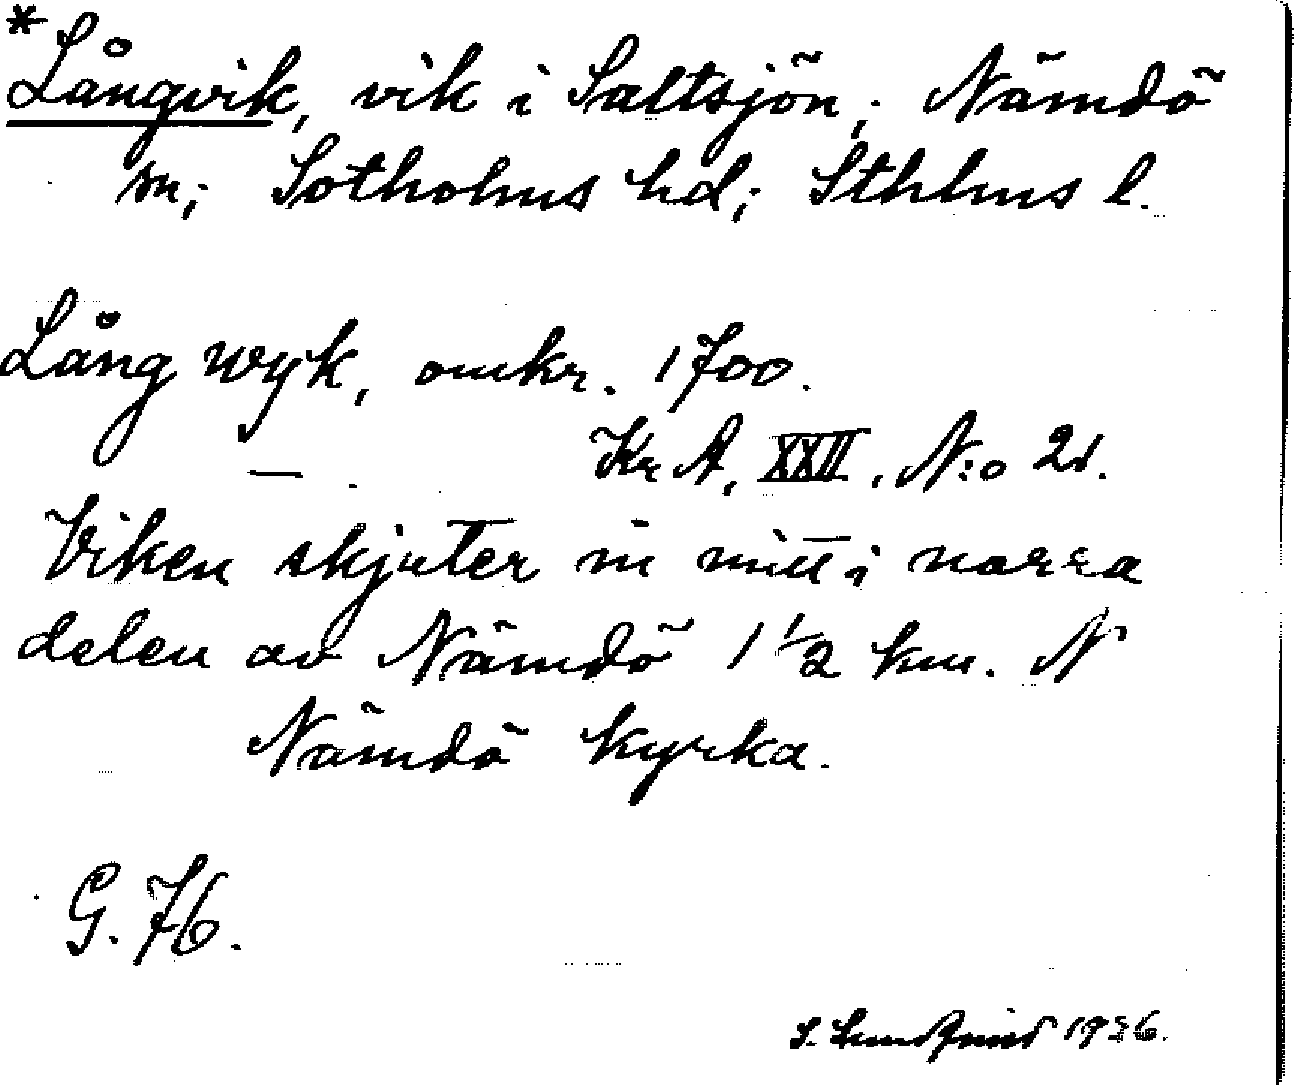 *
Långvik, vik i Saltsjön; Nämdö
sn; Sotholms hd; Sthlms l.
Lång wyk, omkr. 1700.
Kr A, XXII, N:o 21.
—
Viken skjuter in mitt i norra
delen av Nämdö 1 1/2 km. N
Nämdö kyrka.
G. 76.
S. Lundqvist 1936.